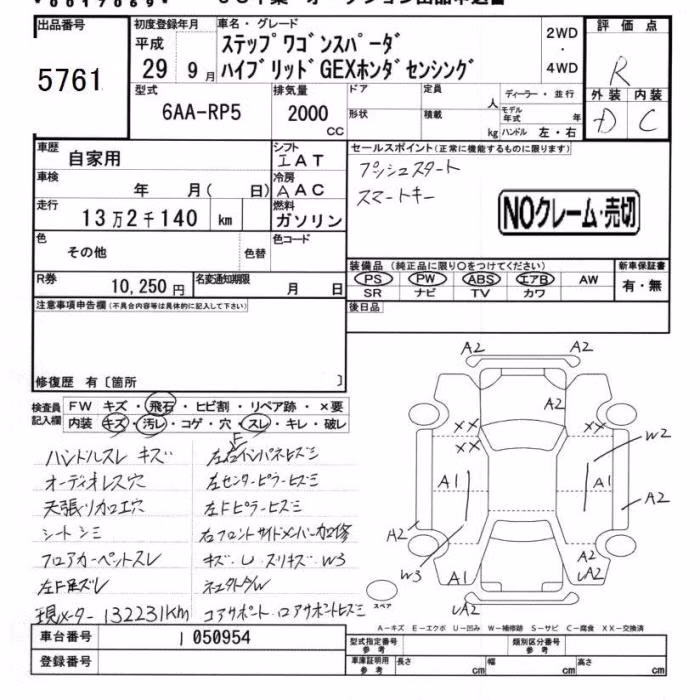 *0017069*
出品番号
5761
初度登録年月
平成
29 9月
車名・グレード
ステップワゴンスパーダ
ハイブリッドGEXホンダセンシング
2WD
・
4WD
評価点
R
外装 内装
D C
型式
6AA-RP5
排気量
2000
CC
ドア
定員
人
ディーラー・並行
形状
積載
kg
モデル年式
年
ハンドル 左・右
車歴
自家用
シフト
IAT
車検
年 月( 日)
冷房
AAC
走行
13万2千140 km
燃料
ガソリン
色
その他
色替
色コード
R券
10,250円
名変通知期限
月 日
セールスポイント(正常に機能するものに限ります)
プッシュスタート
スマートキー
NOクレーム・売切
装備品(純正品に限り○をつけてください)
新車保証書
PS PW ABS エアB AW
SR ナビ TV カワ
有・無
注意事項申告欄(不具合内容等は具体的に記入して下さい)
後日品
修復歴 有〔箇所 〕
検査員記入欄
FW キズ・飛石・ヒビ割・リペア跡・×要
内装 キズ・汚レ・コゲ・穴・スレ・キレ・破レ
ハンドルスレ キズ
オーディオレス穴
天張リカロエ穴
シートシミ
フロアカーペットスレ
左F足ズレ
現メーター 132231km
左右インパネヒズミ
F
左センターピラーヒズミ
左Fピラーヒズミ
右フロントサイドメンバーカロ修
キズ・U スリキズ W3
コアサポート・ロアサポートヒズミ
A2
A2
A2
XX
XX
W2
A1
A1
A2
A2
W3
A1
UA2
UA2
スペア
A-キズ E-エクボ U-凹み W-補修跡 S-サビ C-腐食 XX-交換済
車台番号
1050954
登録番号
型式指定番号
参考
類別区分番号
参考
車庫証明用
参考
長さ cm
幅 cm
高さ cm